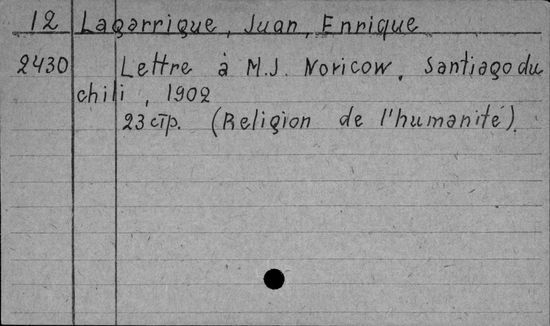 12 Lagarrigue, Juan, Enrique
2430 Lettre à M.J. Noricow, Santiago du
chili, 1902
23 стр. (Religion de l'humanité).